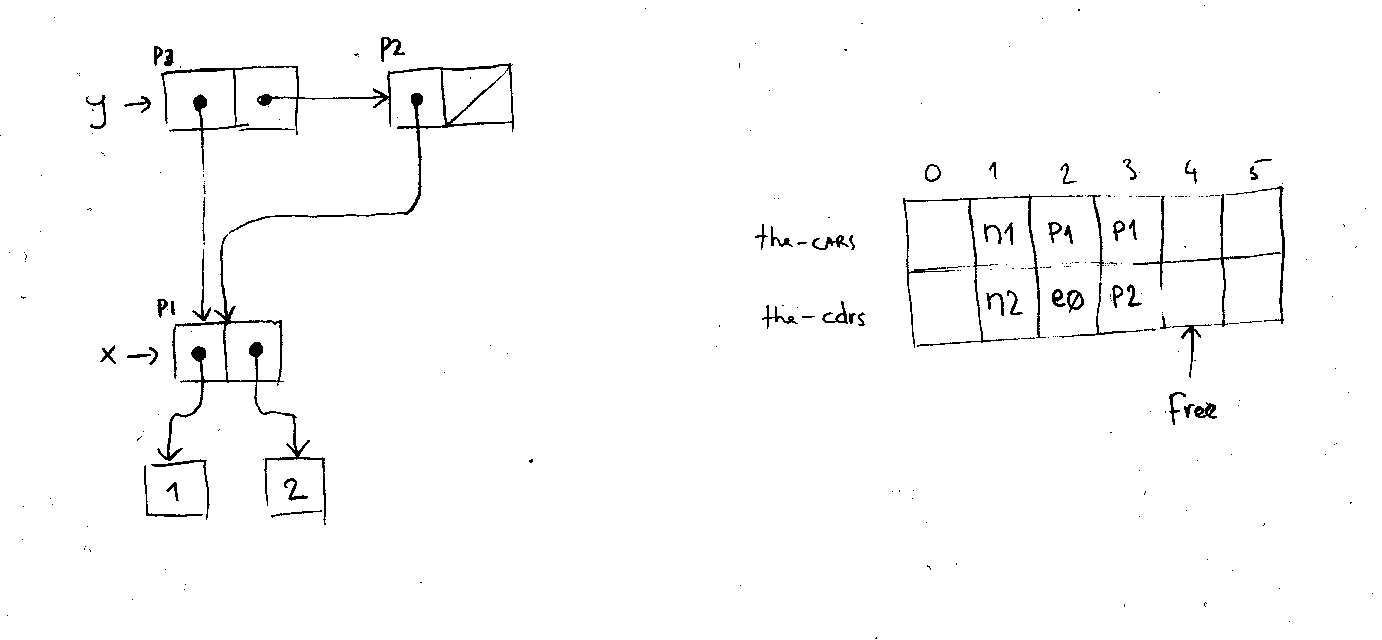 P3 P2
y →
P1
x →
1 2
0 1 2 3 4 5
the-CARS n1 P1 P1
the-cdrs n2 e0 P2
Free